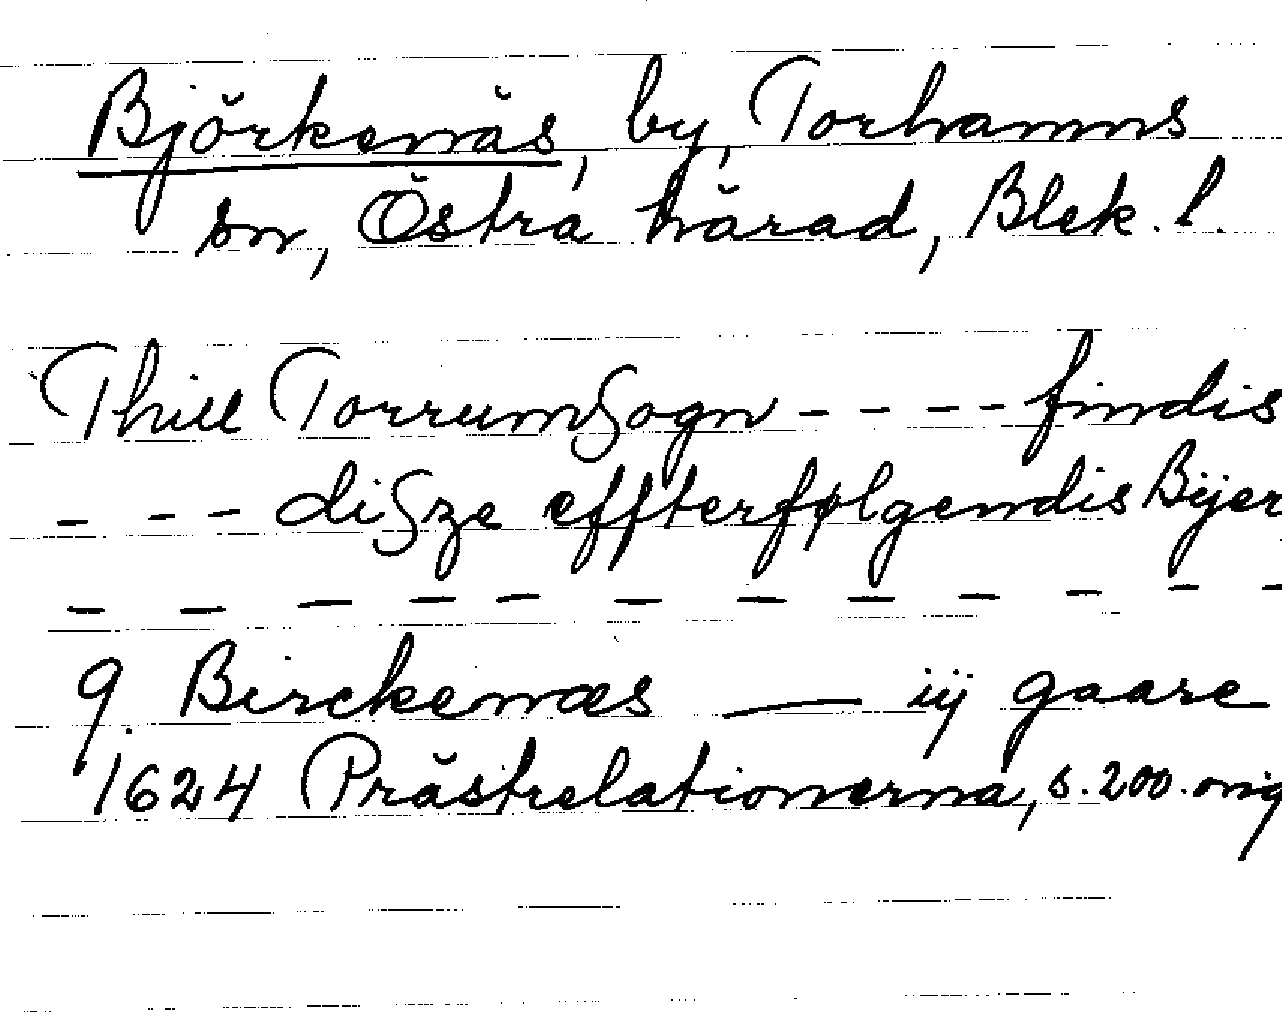 Björkenäs, by, Torhamns
sn, Östra härad, Blek. l.
Thill Torrumßogn - - - - findis
- - - dißze effterfølgendis Bijer
- - - - - - - - - - - -
9. Birckenæs — iij gaare
1624 Prästrelationerna, s. 200. orig